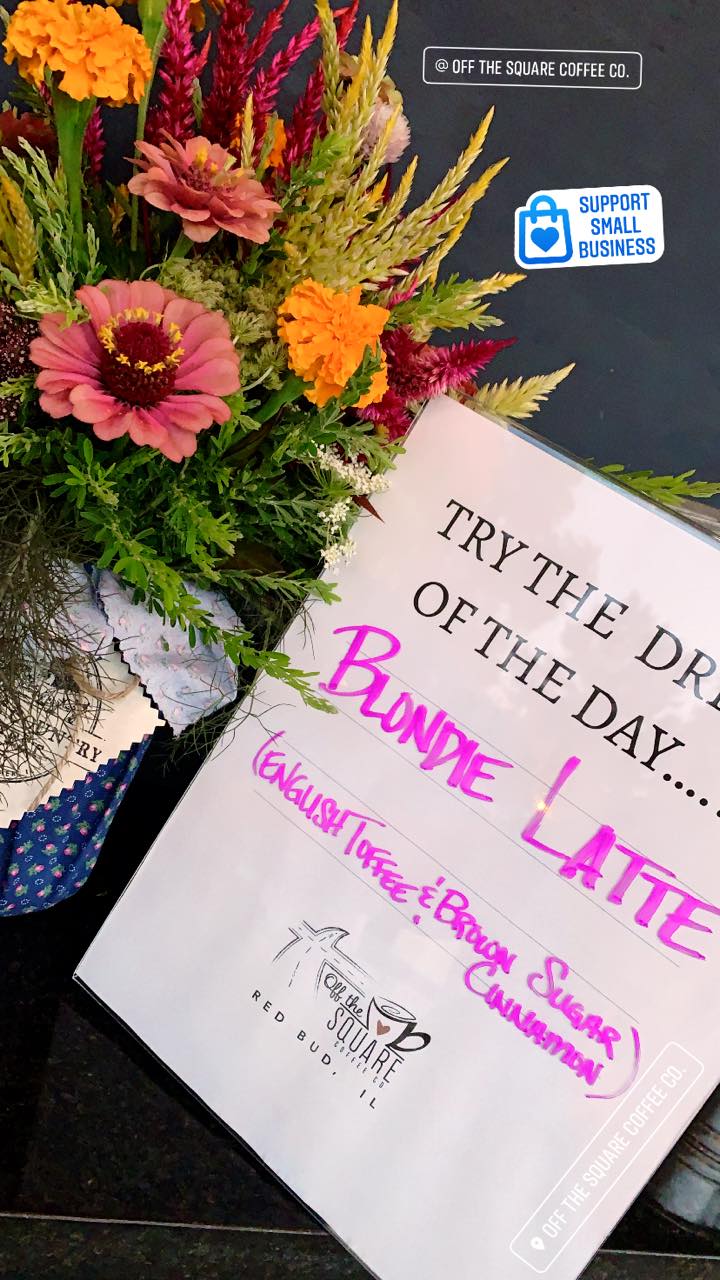 @ OFF THE SQUARE COFFEE CO.
SUPPORT
SMALL
BUSINESS
TRY THE DRI
OF THE DAY.....
BLONDIE LATTE
(ENGLISH TOFFEE & BROWN SUGAR
CINNAMON)
Off the
SQUARE
COFFEE CO.
RED BUD, IL
OFF THE SQUARE COFFEE CO.